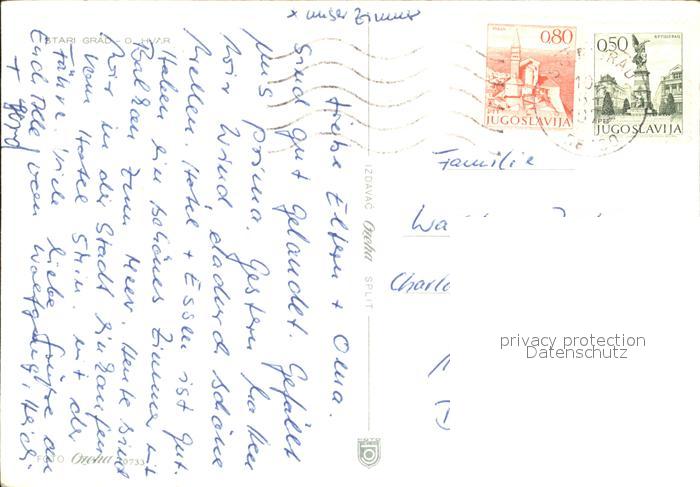 x unser Zimmer
STARI GRAD - O. HVAR
Liebe Eltern + Oma.
Sind gut gelandet. Gefällt
uns prima. Gestern hatten
wir Wind, dadurch schöne
Wellen. Hotel + Essen ist gut.
Haben ein schönes Zimmer mit
Balkon zum Meer. Heute sind
wir in der Stadt einkaufen
vom Hotel 5 Min. mit der
Fähre. Viele liebe Grüße an
Euch alle von Wolfgang, Heidi
+
FOTO Oreha 9733
IZDAVAČ Oreha SPLIT
FOTO
PIRAN
0,80
JUGOSLAVIJA
KRUŠEVAC
0,50
JUGOSLAVIJA
Familie
Wa
Charlo
privacy protection
Datenschutz